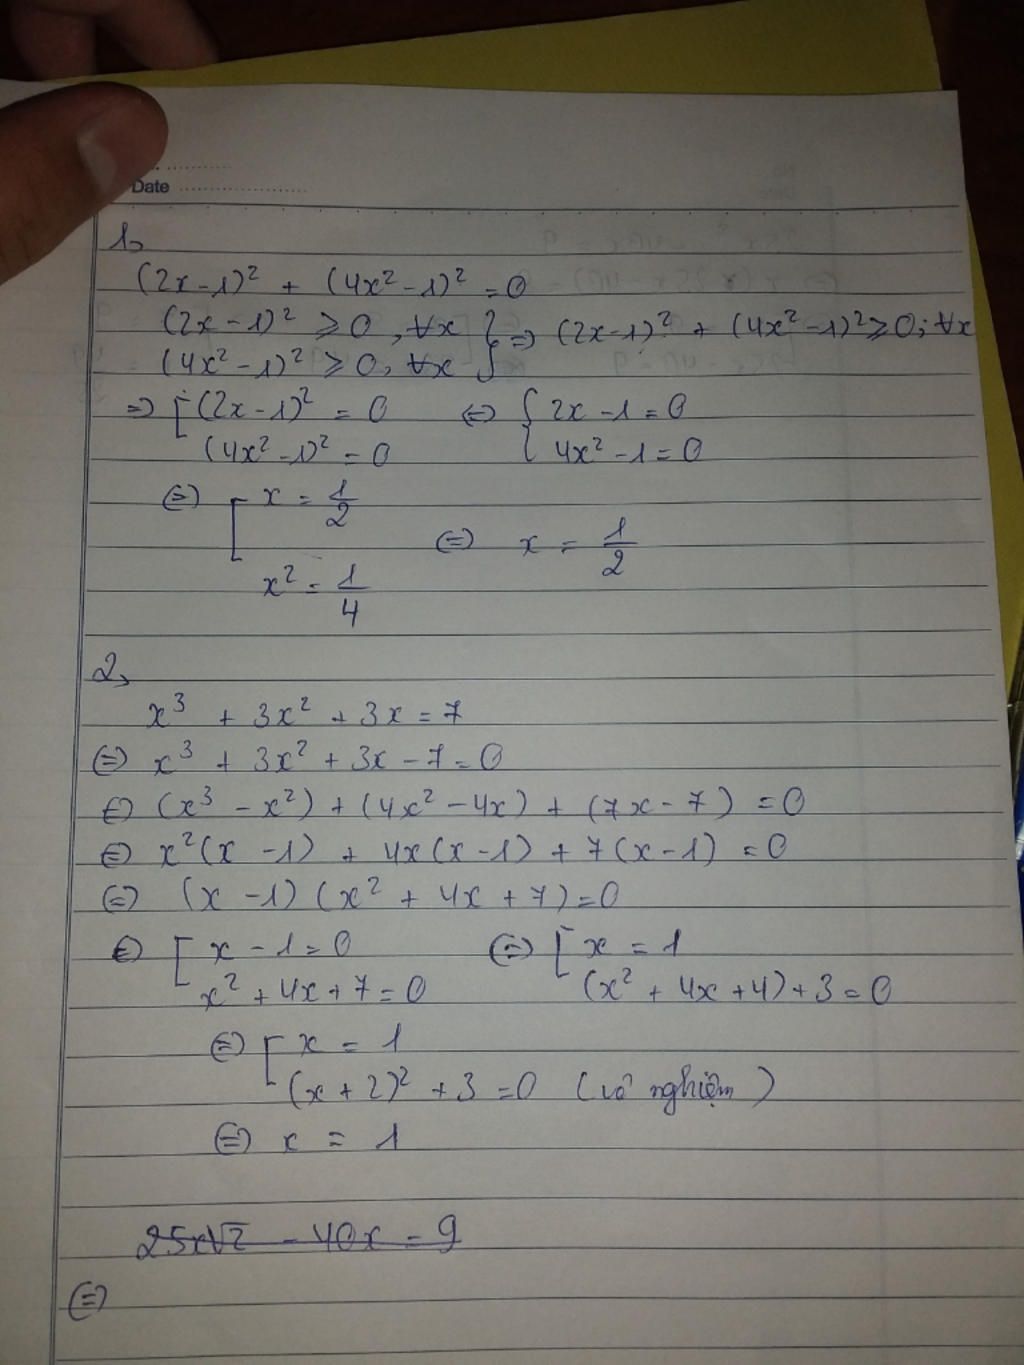 Date
1,
(2x-1)² + (4x²-1)² = 0
(2x-1)² ≥ 0, ∀x } => (2x-1)² + (4x²-1)² ≥ 0; ∀x
(4x²-1)² ≥ 0, ∀x
=> [ (2x-1)² = 0 <=> { 2x-1 = 0
(4x²-1)² = 0 4x²-1 = 0
<=> [ x = 1/2
<=> x = 1/2
x² = 1/4
2,
x³ + 3x² + 3x = 7
<=> x³ + 3x² + 3x - 7 = 0
<=> (x³ - x²) + (4x² - 4x) + (7x - 7) = 0
<=> x²(x-1) + 4x(x-1) + 7(x-1) = 0
<=> (x-1)(x² + 4x + 7) = 0
<=> [ x-1 = 0 <=> [ x = 1
x² + 4x + 7 = 0 (x² + 4x + 4) + 3 = 0
<=> [ x = 1
(x+2)² + 3 = 0 (vô nghiệm)
<=> x = 1
25x√2 - 40x = 9
<=>